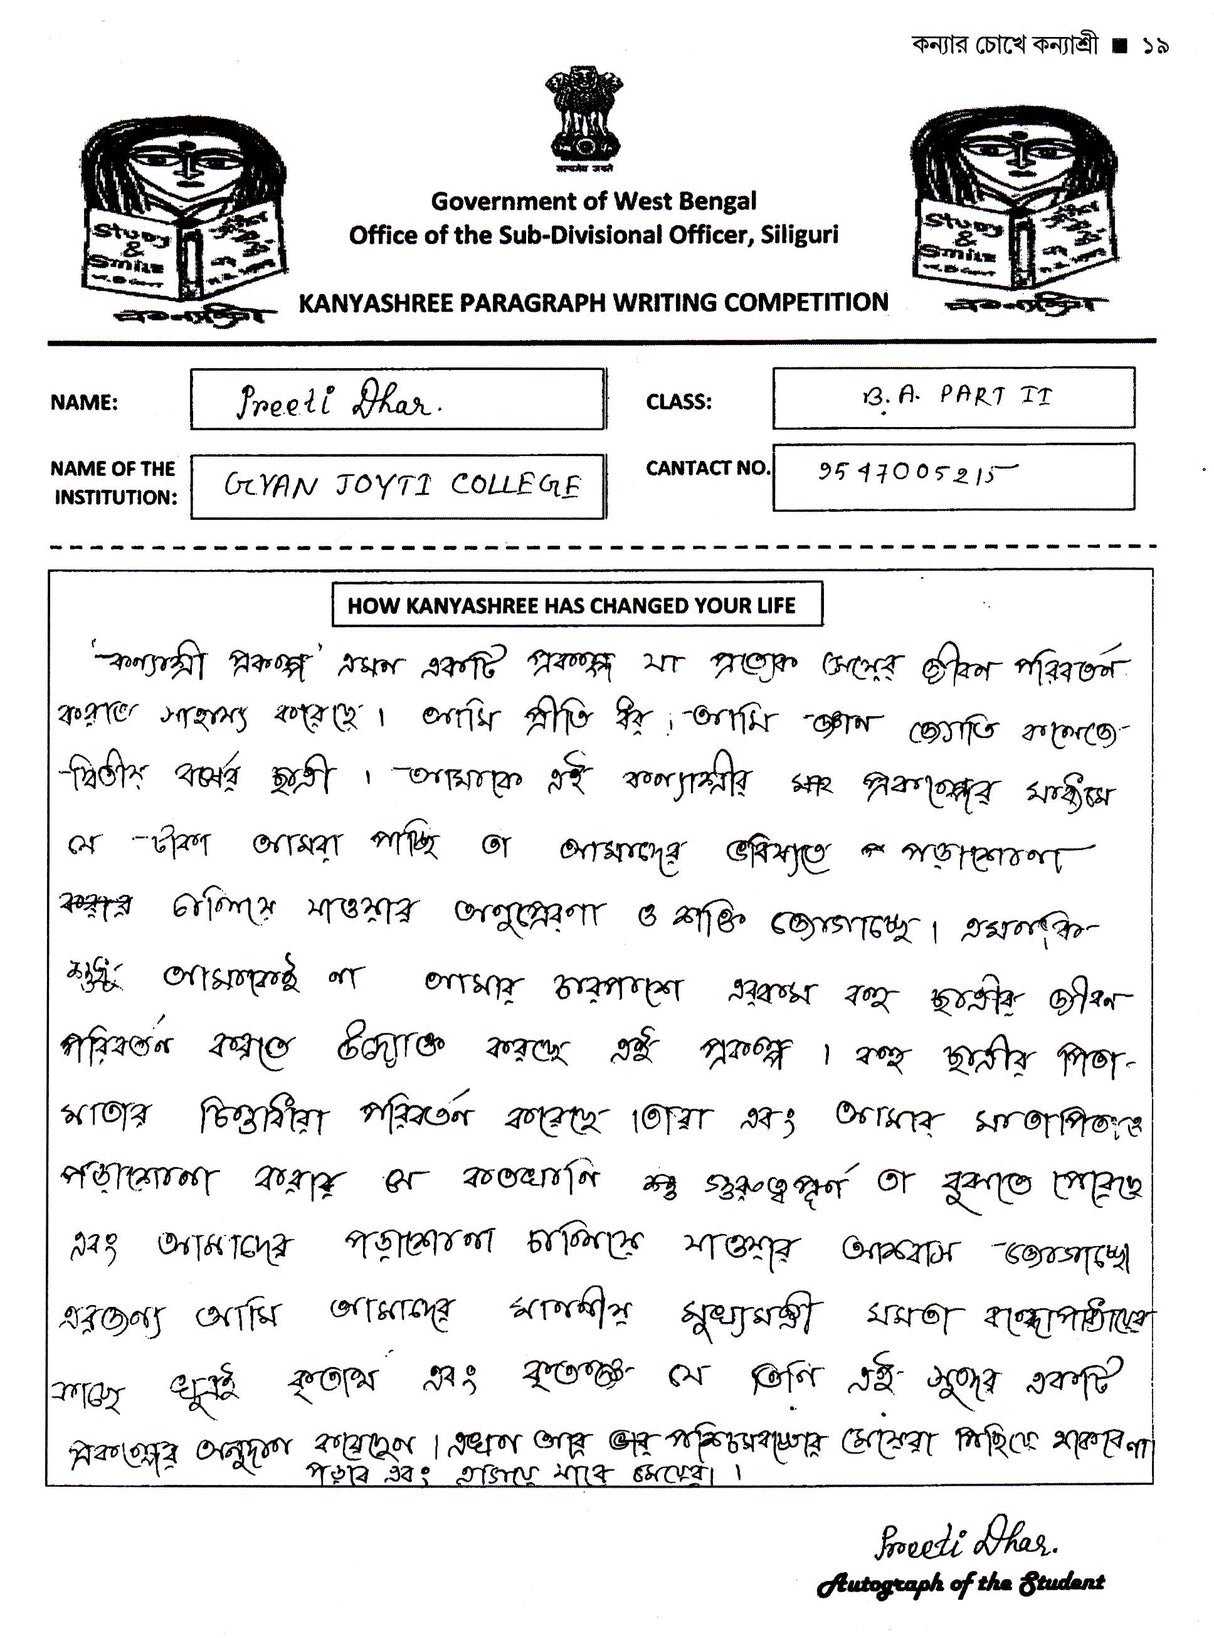 কন্যার চোখে কন্যাশ্রী ■ ১৯
सत्यमेव जयते
Study
&
Smile
Study
&
Smile
Government of West Bengal
Office of the Sub-Divisional Officer, Siliguri
কন্যাশ্রী
কন্যাশ্রী
KANYASHREE PARAGRAPH WRITING COMPETITION
NAME: Preeti Dhar. CLASS: B.A. PART II
NAME OF THE INSTITUTION: GYAN JOYTI COLLEGE CANTACT NO. 9547005215
HOW KANYASHREE HAS CHANGED YOUR LIFE
'কন্যাশ্রী প্রকল্প' এমন একটি প্রকল্প যা প্রত্যেক মেয়ের জীবন পরিবর্তন
করতে সাহায্য করেছে । আমি প্রীতি ধর । আমি জ্ঞান জ্যোতি কলেজে
দ্বিতীয় বর্ষের ছাত্রী । আমাকে এই কন্যাশ্রীর প্রকল্পের মাধ্যমে
যে টাকা আমরা পাচ্ছি তা আমাদের ভবিষ্যতে পড়াশোনা
চালিয়ে যাওয়ার অনুপ্রেরণা ও শক্তি জোগাচ্ছে । এমনকি
শুধু আমাকেই না আমার চারপাশে এরকম বহু ছাত্রীর জীবন
পরিবর্তন করতে উদ্যোক্ত করছে এই প্রকল্প । বহু ছাত্রীর পিতা-
মাতার চিন্তাধারা পরিবর্তন করেছে । তারা এবং আমার মাতাপিতাও
পড়াশোনা করার যে কতখানি গুরুত্বপূর্ণ তা বুঝতে পেরেছে
এবং আমাদের পড়াশোনা চালিয়ে যাওয়ার আশ্বাস জোগাচ্ছে।
এরজন্য আমি আমাদের মাননীয় মুখ্যমন্ত্রী মমতা বন্দ্যোপাধ্যায়ের
কাছে খুবই কৃতার্থ এবং কৃতজ্ঞ যে তিনি এই সুন্দর একটি
প্রকল্পের অনুদান করেছেন । এখন আর পশ্চিমবঙ্গের মেয়েরা পিছিয়ে থাকবে না
পড়বে এবং এগিয়ে যাবে মেয়েরা ।
Preeti Dhar.
Autograph of the Student